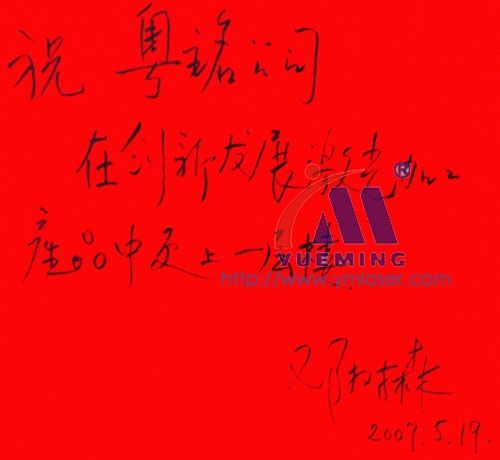 祝 粤铭公司
在创新发展激光加工
產品中更上一层楼.
邓树森
2007.5.19.
®
YUEMING
http://www.ymlaser.com